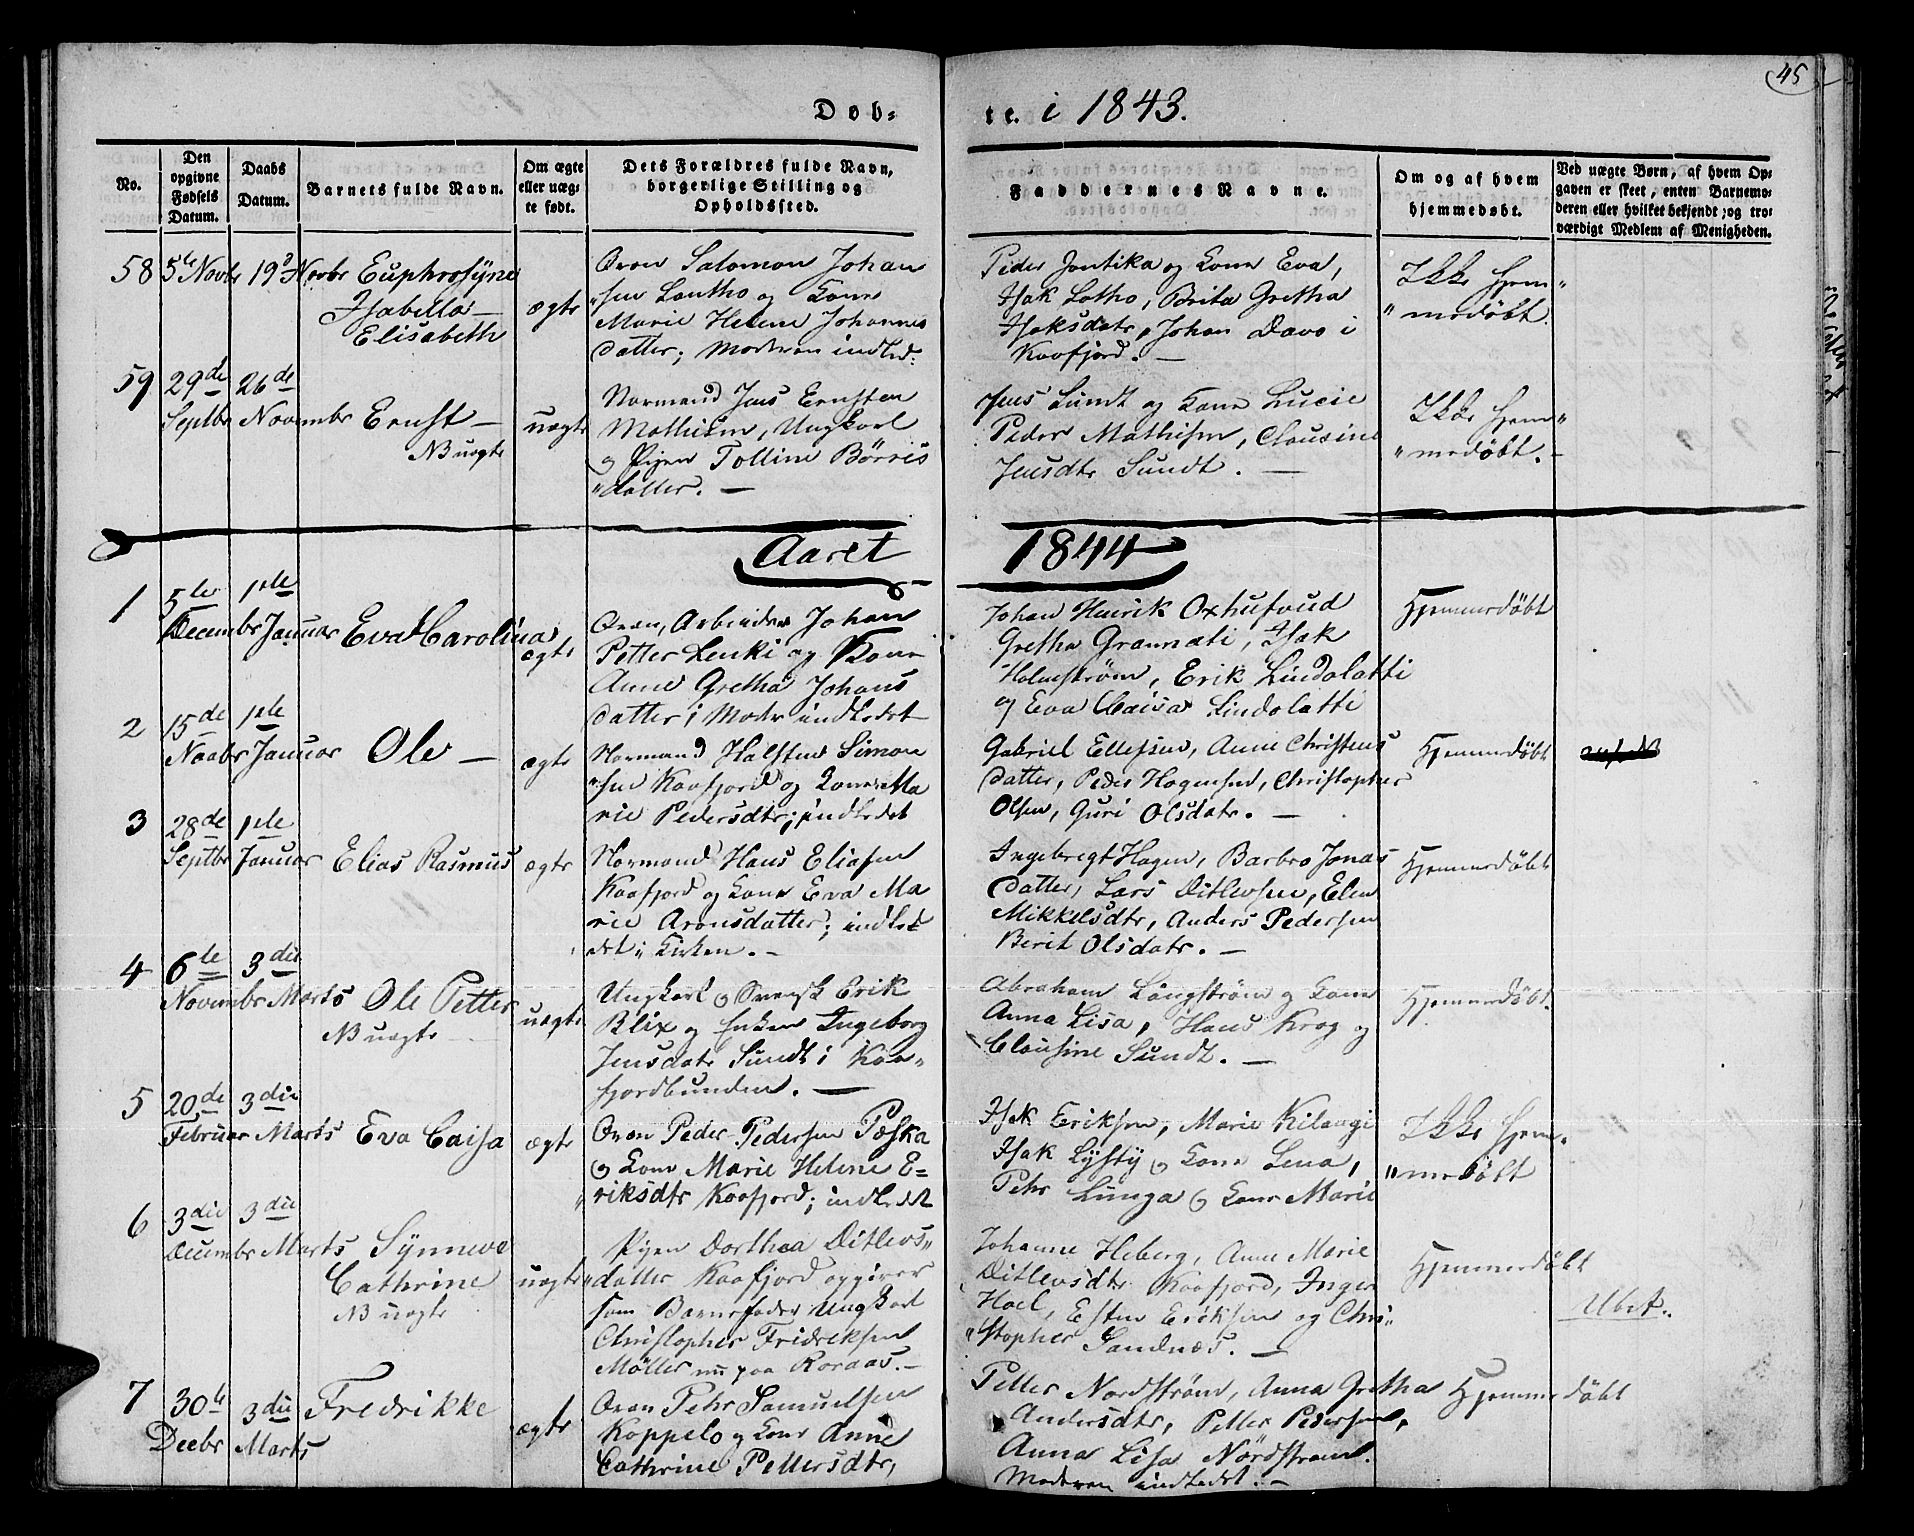 45
Døb= te. i 1843.
No.
Den opgivne Fødsels Datum.
Daabs Datum.
Barnets fulde Navn.
Om ægte eller uæg-te født.
Dets Forældres fulde Navn, borgerlige Stilling og Opholdssted.
Faddernes Navne.
Om og af hvem hjemmedøbt.
Ved uægte Børn, af hvem Op-gaven er skeet, enten Barnemo-deren eller hvilket bekjendt og tro-værdigt Medlem af Menigheden.
58
5te Novbr
19de Novbr
Euphrosÿne
Isabella
Elisabeth
ægte
Qvæn Salomon Johan
"sen Lantho og Kone
Marie Helene Johannes
datter; Moderen indled:
Peder Jontika og Kone Eva,
Isak Lotho, Brita Gretha
Isaksdatr, Johan Davo i
Kaafjord. –
Ikke Hjem"
" medøbt.
59
29de
Septbr
26de
Novembr
Ernst –
NB uægte
uægte
Normand Jens Ernsten
Mathisen, Ungkarl
og Pigen Tolline Börres
"datter. –
Jens Sundt og Kone Lucie
Peder Mathisen, Clausine
Jensdtr Sundt. –
Ikke Hjem"
" medøbt. –
Aaret 1844
1
5te
Decembr
1ste
Januar
Eva Carolina
ægte
Qvæn, Arbeider Johan
Petter Lenki og Kone
Anne Gretha Johans
datter; Modr indledet
Johan Henrik Oxhufvud
Gretha Grannati, Isak
Holmstrøm, Erik Lindolatti
og Eva Caisa Lindolatti
Hjemmedøbt
2
15de
Novbr
1ste
Januar
Ole –
ægte
Normand Halsten Simon
"sen Kaafjord og Kone Ma
rie Pedersdtr; indledet
Gabriel Ellefsen, Anne Christens
datter, Peder Hagensen, Christopher
Olsen, Guri Olsdatr. –
Hjemmedøbt
3
28de
Septbr
1ste
Januar
Elias Rasmus
ægte
Normand Hans Eliasen
Kaafjord og Kone Eva Ma
rie Aronsdatter; indle
det i Kirken. –
Ingebrigt Hagen, Barbro Jonas
datter, Lars Ditlevsen, Elen
Mikkelsdtr, Anders Pedersen
Berit Olsdatr. –
Hjemmedøbt
4
6te
Novembr
3die
Marts
Ole Petter
NB uægte
uægte
Ungkarl og Svensk Erik
Blix og Enken Ingeborg
Jensdatr Sundt i Kaa"
fjordbunden. –
Abraham Långström og Kone
Anna Lisa, Hans Krog og
Clausine Sundt. –
Hjemmedøbt.
5
20de
Februar
3die
Marts
Eva Caisa
ægte
Qvæn Peder Pedersen Pæska
og Kone Marie Helene E=
"riksdtr Kaafjord; indledet
Isak Eriksen, Marie Kilangi
Isak Lÿstÿ og Kone Lena,
Pehr Lunga og Kone Marie
Ikke Hjem"
" medøbt
6
3die
Decembr
3die
Marts
Sÿnneve
Cathrine
NB uægte
uægte
Pigen Dorthea Ditlevs"
"datter Kaafjord opgiver
som Barnefader Ungkarl
Christopher Fridriksen
Möller nu paa Roraas. –
Johanne Heberg, Anne Marie
Ditlevsdtr Kaafjord, Inger
Hoel, Esten Eriksen og Chri"
"stopher Sandnæs. –
Hjemmedøbt
Ubet.
7
30te
Decbr
3die
Marts
Fredrikke
ægte
Qvæn Pehr Samuelsen
Koppelo og Kone Anne
Cathrine Pettersdtr,
Petter Nordström, Anna Gretha
Andersdtr, Petter Pedersen,
Anna Lisa Nordstrøm.
Moderen indledet. –
Hjemmedøbt